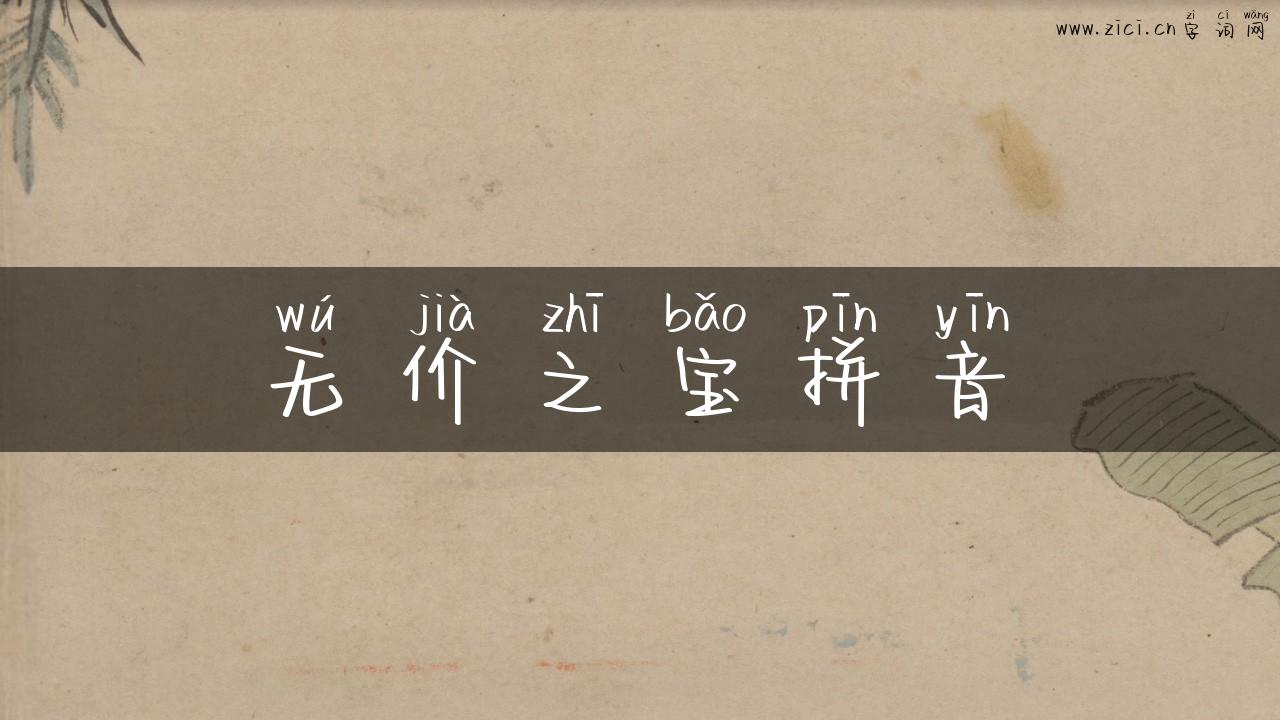 zì cí wǎng
www.zici.cn 字 词 网
wú jià zhī bǎo pīn yīn
无 价 之 宝 拼 音